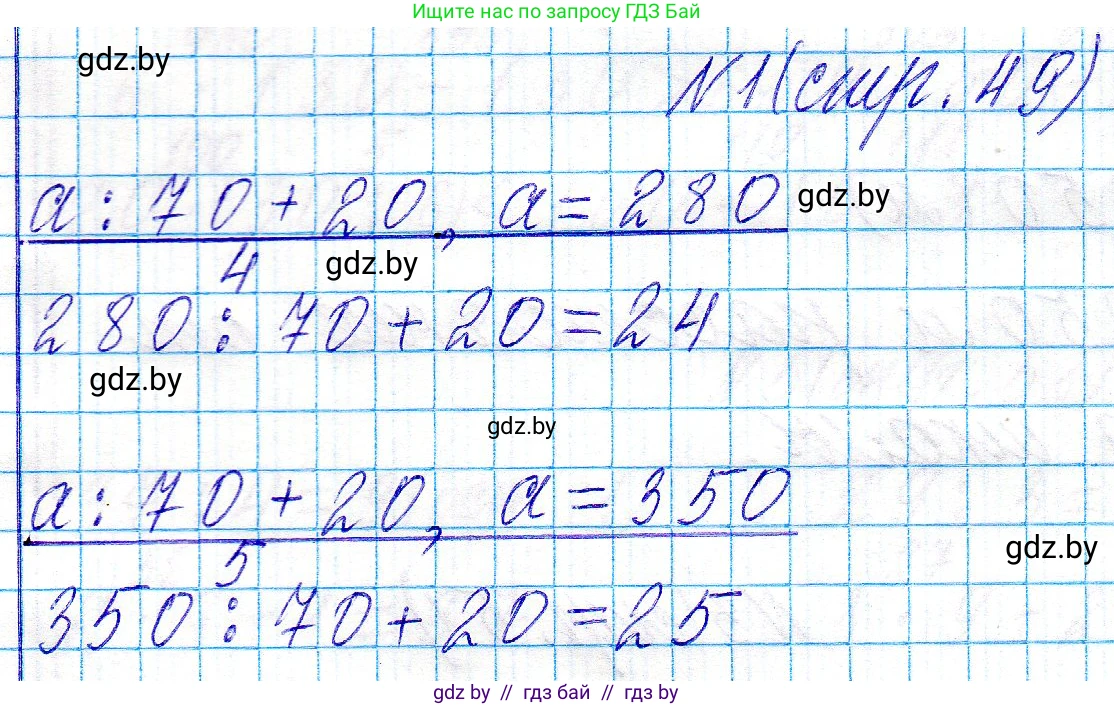 Ищите нас по запросу ГДЗ Бай
gdz.by
N1(стр. 49)
a : 70 + 20, a = 280
gdz.by
4
gdz.by
280 : 70 + 20 = 24
gdz.by
gdz.by
a : 70 + 20, a = 350
gdz.by
5
350 : 70 + 20 = 25
gdz by // гдз бай // гдз by